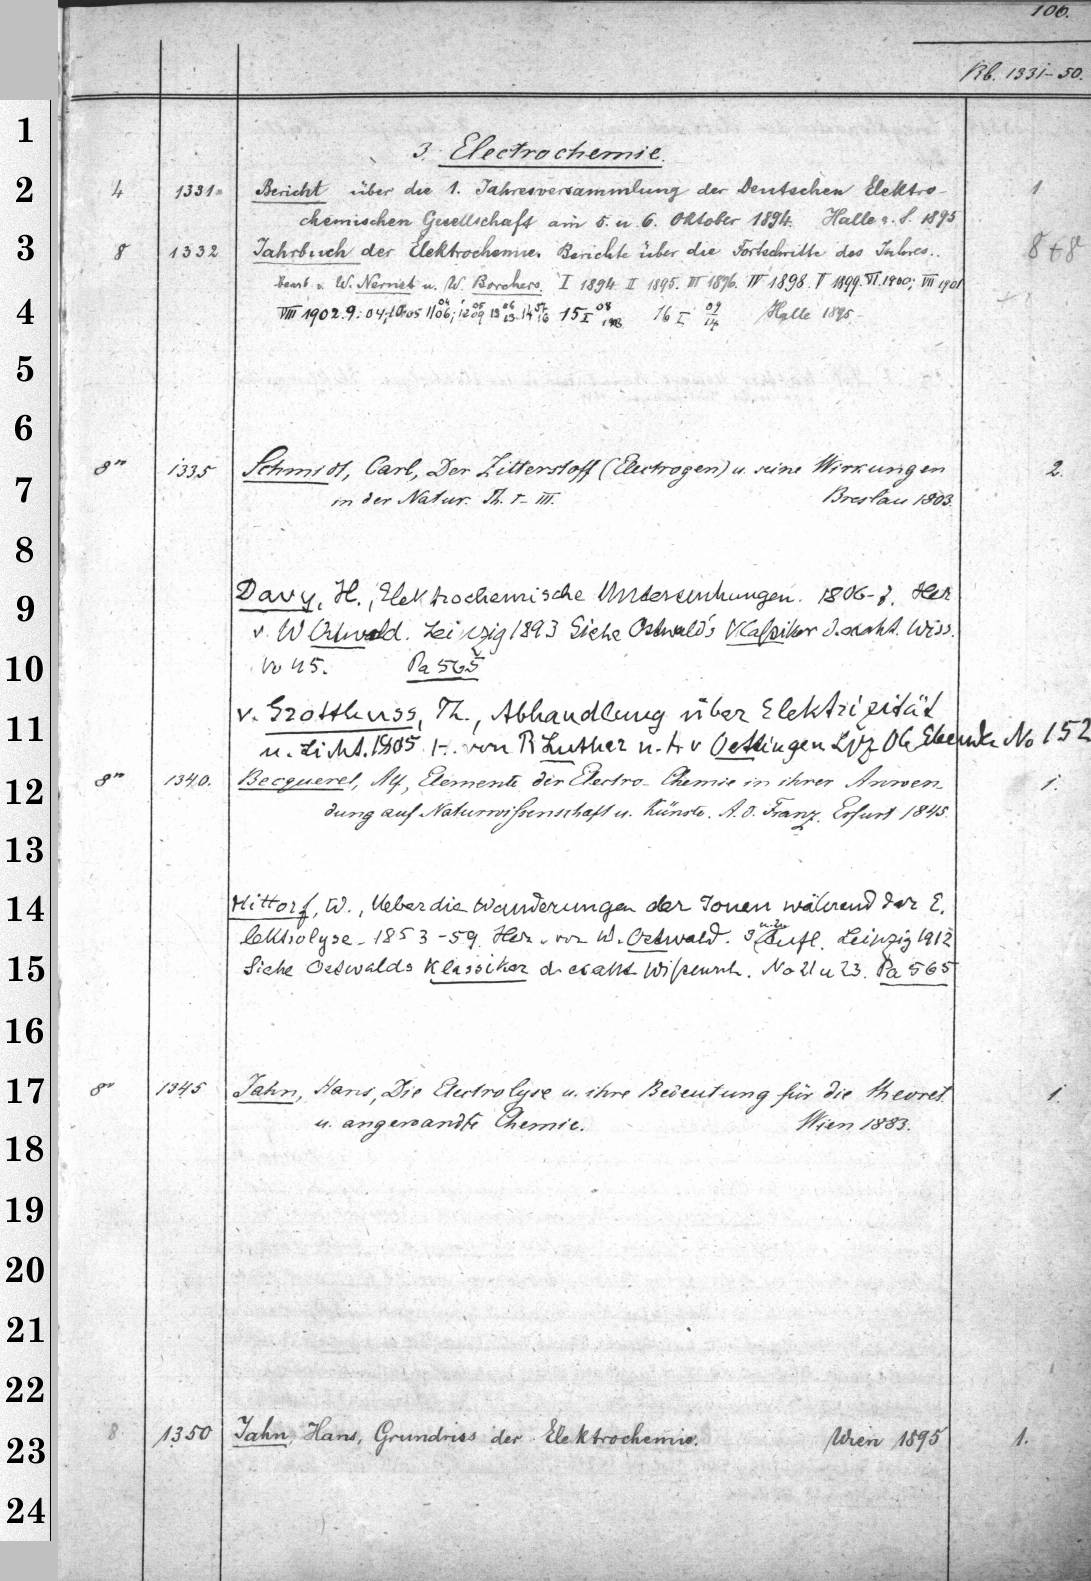 1
2
3
4
5
6
7
8
9
10
11
12
13
14
15
16
17
18
19
20
21
22
23
24
100.
Rb. 1331-50.
3. Electrochemie.
4 1331. Bericht über die 1. Jahresversammlung der Deutschen Elektro- 1
chemischen Gesellschaft am 5. u 6. Oktober 1894. Halle a. S. 1895
8 1332 Jahrbuch der Elektrochemie. Berichte über die Fortschritte des Jahres.. 8+8
v. W. Nernst u. W. Borchers. I 1894. II 1895. III 1896. IV 1898. V 1899. VI 1900; VII 1901
VIII 1902. 9: 04; 15 I 08 16 I 09 14 Halle 1895
8" 1335 Schmidt, Carl, Der Zitterstoff (Electrogen) u. seine Wirkungen 2.
in der Natur. Th. I-III. Breslau 1803.
Davy, H., Elektrochemische Untersuchungen. 1806-7. Her
v. W Ostwald. Leipzig 1893 Siehe Ostwald's Klassiker d. exakt. Wiss.
No 45. Pa 565
v. Grotthuss, Th., Abhandlung über Elektrizität
u. Licht. 1905 H. von R Luther u. A v Oettingen Lpz 06 Ebenda No 152
8" 1340. Becquerel, Alf, Elemente der Electro-Chemie in ihrer Anwen- 1.
dung auf Naturwissenschaft u. Künste. A. d. Franz. Erfurt 1845.
Hittorf, W., Ueber die Wanderungen der Ionen während der E.
lektrolyse. 1853-59. Her. von W. Ostwald. Aufl. Leipzig 1912
Siehe Ostwalds Klassiker d. exakt Wissensch. No 21 u 23. Pa 565
8" 1345 Jahn, Hans, Die Electrolyse u. ihre Bedeutung für die theoret. 1.
u. angewandte Chemie. Wien 1883.
8 1350 Jahn, Hans, Grundriss der Elektrochemie. Wien 1895 1.